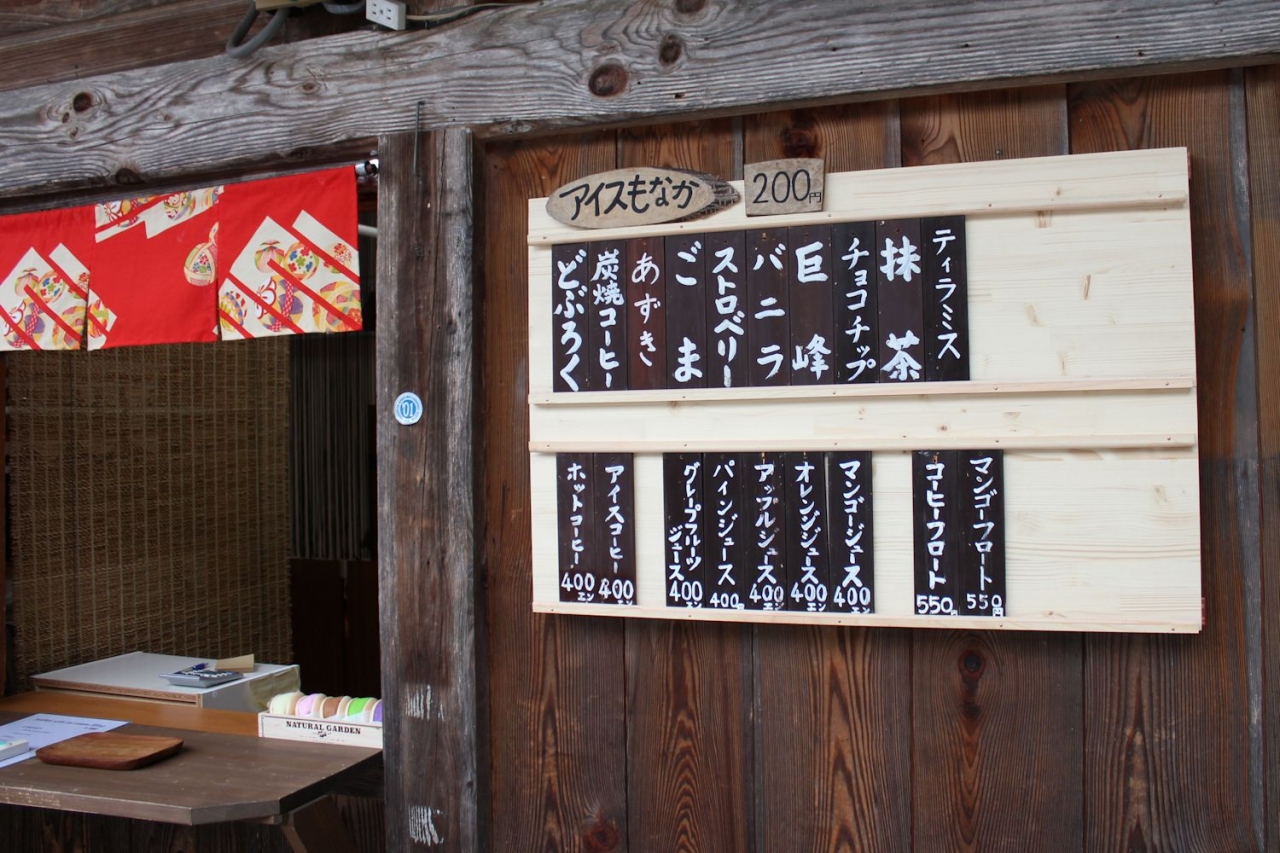 アイスもなか
200円
ティラミス
抹茶
チョコチップ
巨峰
バニラ
ストロベリー
ごま
あずき
炭焼コーヒー
どぶろく
マンゴーフロート
550円
コーヒーフロート
550円
マンゴージュース
400エン
オレンジジュース
400エン
アップルジュース
400エン
パインジュース
400円
グレープフルーツ
ジュース
400エン
アイスコーヒー
400エン
ホットコーヒー
400エン
10
NATURAL GARDEN